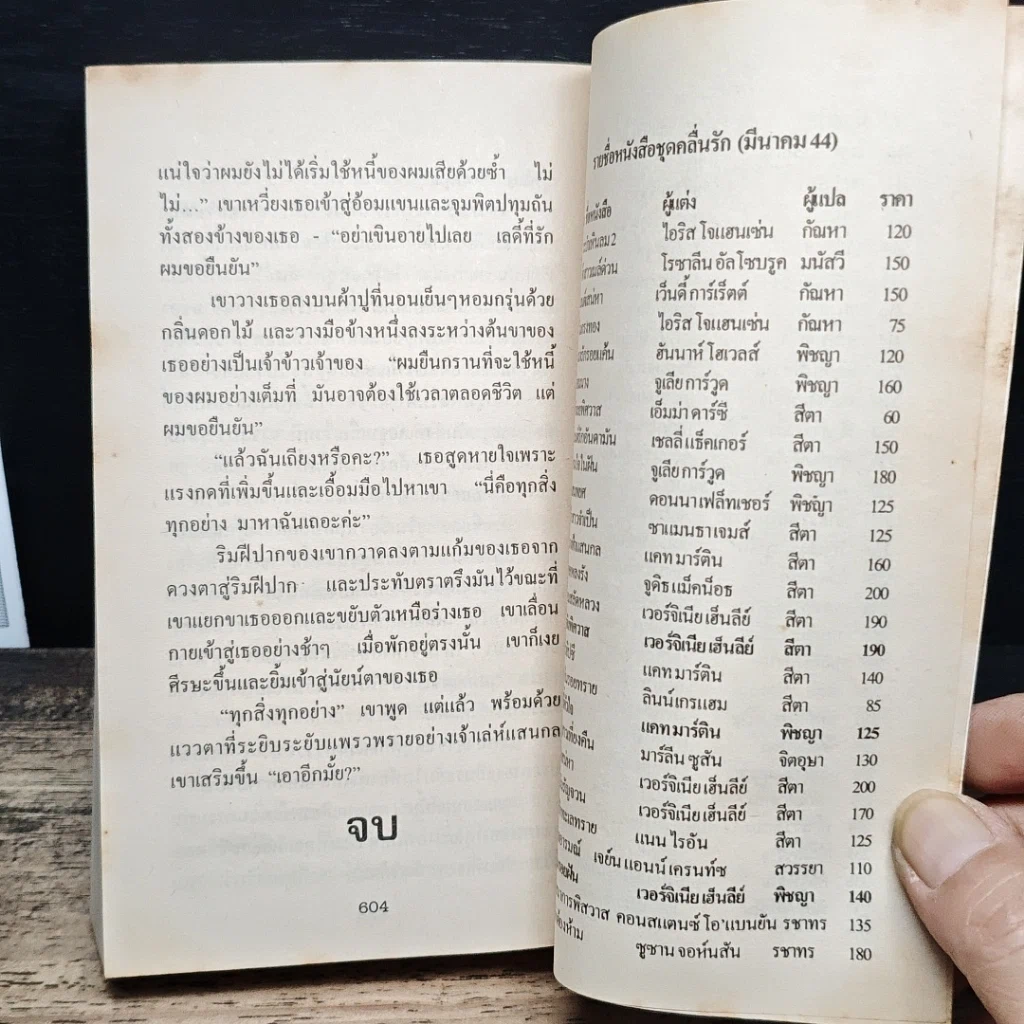 แน่ใจว่าผมยังไม่ได้เริ่มใช้หนี้ของผมเสียด้วยซ้ำ ไม่
ไม่...” เขาเหวี่ยงเธอเข้าสู่อ้อมแขนและจุมพิตปทุมถัน
ทั้งสองข้างของเธอ - “อย่าเขินอายไปเลย เลดี้ที่รัก
ผมขอยืนยัน”
เขาวางเธอลงบนผ้าปูที่นอนเย็นๆหอมกรุ่นด้วย
กลิ่นดอกไม้ และวางมือข้างหนึ่งลงระหว่างต้นขาของ
เธออย่างเป็นเจ้าข้าวเจ้าของ “ผมยืนกรานที่จะใช้หนี้
ของผมอย่างเต็มที่ มันอาจต้องใช้เวลาตลอดชีวิต แต่
ผมขอยืนยัน”
“แล้วฉันเถียงหรือคะ?” เธอสูดหายใจเพราะ
แรงกดที่เพิ่มขึ้นและเอื้อมมือไปหาเขา “นี่คือทุกสิ่ง
ทุกอย่าง มาหาฉันเถอะค่ะ”
ริมฝีปากของเขากวาดลงตามแก้มของเธอจาก
ดวงตาสู่ริมฝีปาก และประทับตราตรึงมันไว้ขณะที่
เขาแยกขาเธอออกและขยับตัวเหนือร่างเธอ เขาเลื่อน
กายเข้าสู่เธออย่างช้าๆ เมื่อพักอยู่ตรงนั้น เขาก็เงย
ศีรษะขึ้นและยิ้มเข้าสู่นัยน์ตาของเธอ
“ทุกสิ่งทุกอย่าง” เขาพูด แต่แล้ว พร้อมด้วย
แววตาที่ระยิบระยับแพรวพรายอย่างเจ้าเล่ห์แสนกล
เขาเสริมขึ้น “เอาอีกมั้ย?”
จบ
604
รายชื่อหนังสือชุดคลื่นรัก (มีนาคม 44)
ชื่อหนังสือ ผู้แต่ง ผู้แปล ราคา
ไอริส โจแฮนเซ่น กัณหา 120
โรซาลีน อัลโซบรูค มนัสวี 150
เว็นดี้ การ์เร็ตต์ กัณหา 150
ไอริส โจแฮนเซ่น กัณหา 75
ฮันนาห์ โฮเวลส์ พิชญา 120
จูเลีย การ์วูด พิชญา 160
เอ็มม่า ดาร์ซี สีตา 60
เชลลี่ แธ็คเกอร์ สีตา 150
จูเลีย การ์วูด พิชญา 180
ดอนนา เฟล็ทเชอร์ พิชญา 125
ซาแมนธา เจมส์ สีตา 125
แคท มาร์ติน สีตา 160
จูดิธ แม็คน็อธ สีตา 200
เวอร์จิเนีย เฮ็นลีย์ สีตา 190
เวอร์จิเนีย เฮ็นลีย์ สีตา 190
แคท มาร์ติน สีตา 140
ลินน์ เกรแฮม สีตา 85
แคท มาร์ติน พิชญา 125
มาร์ลีน ซูสัน จิตอุษา 130
เวอร์จิเนีย เฮ็นลีย์ สีตา 200
เวอร์จิเนีย เฮ็นลีย์ สีตา 170
แนน ไรอัน สีตา 125
เจย์น แอนน์ เครนท์ซ สวรรยา 110
เวอร์จิเนีย เฮ็นลีย์ พิชญา 140
คอนสแตนซ์ โอ'แบนยัน รชาทร 135
ซูซาน จอห์นสัน รชาทร 180